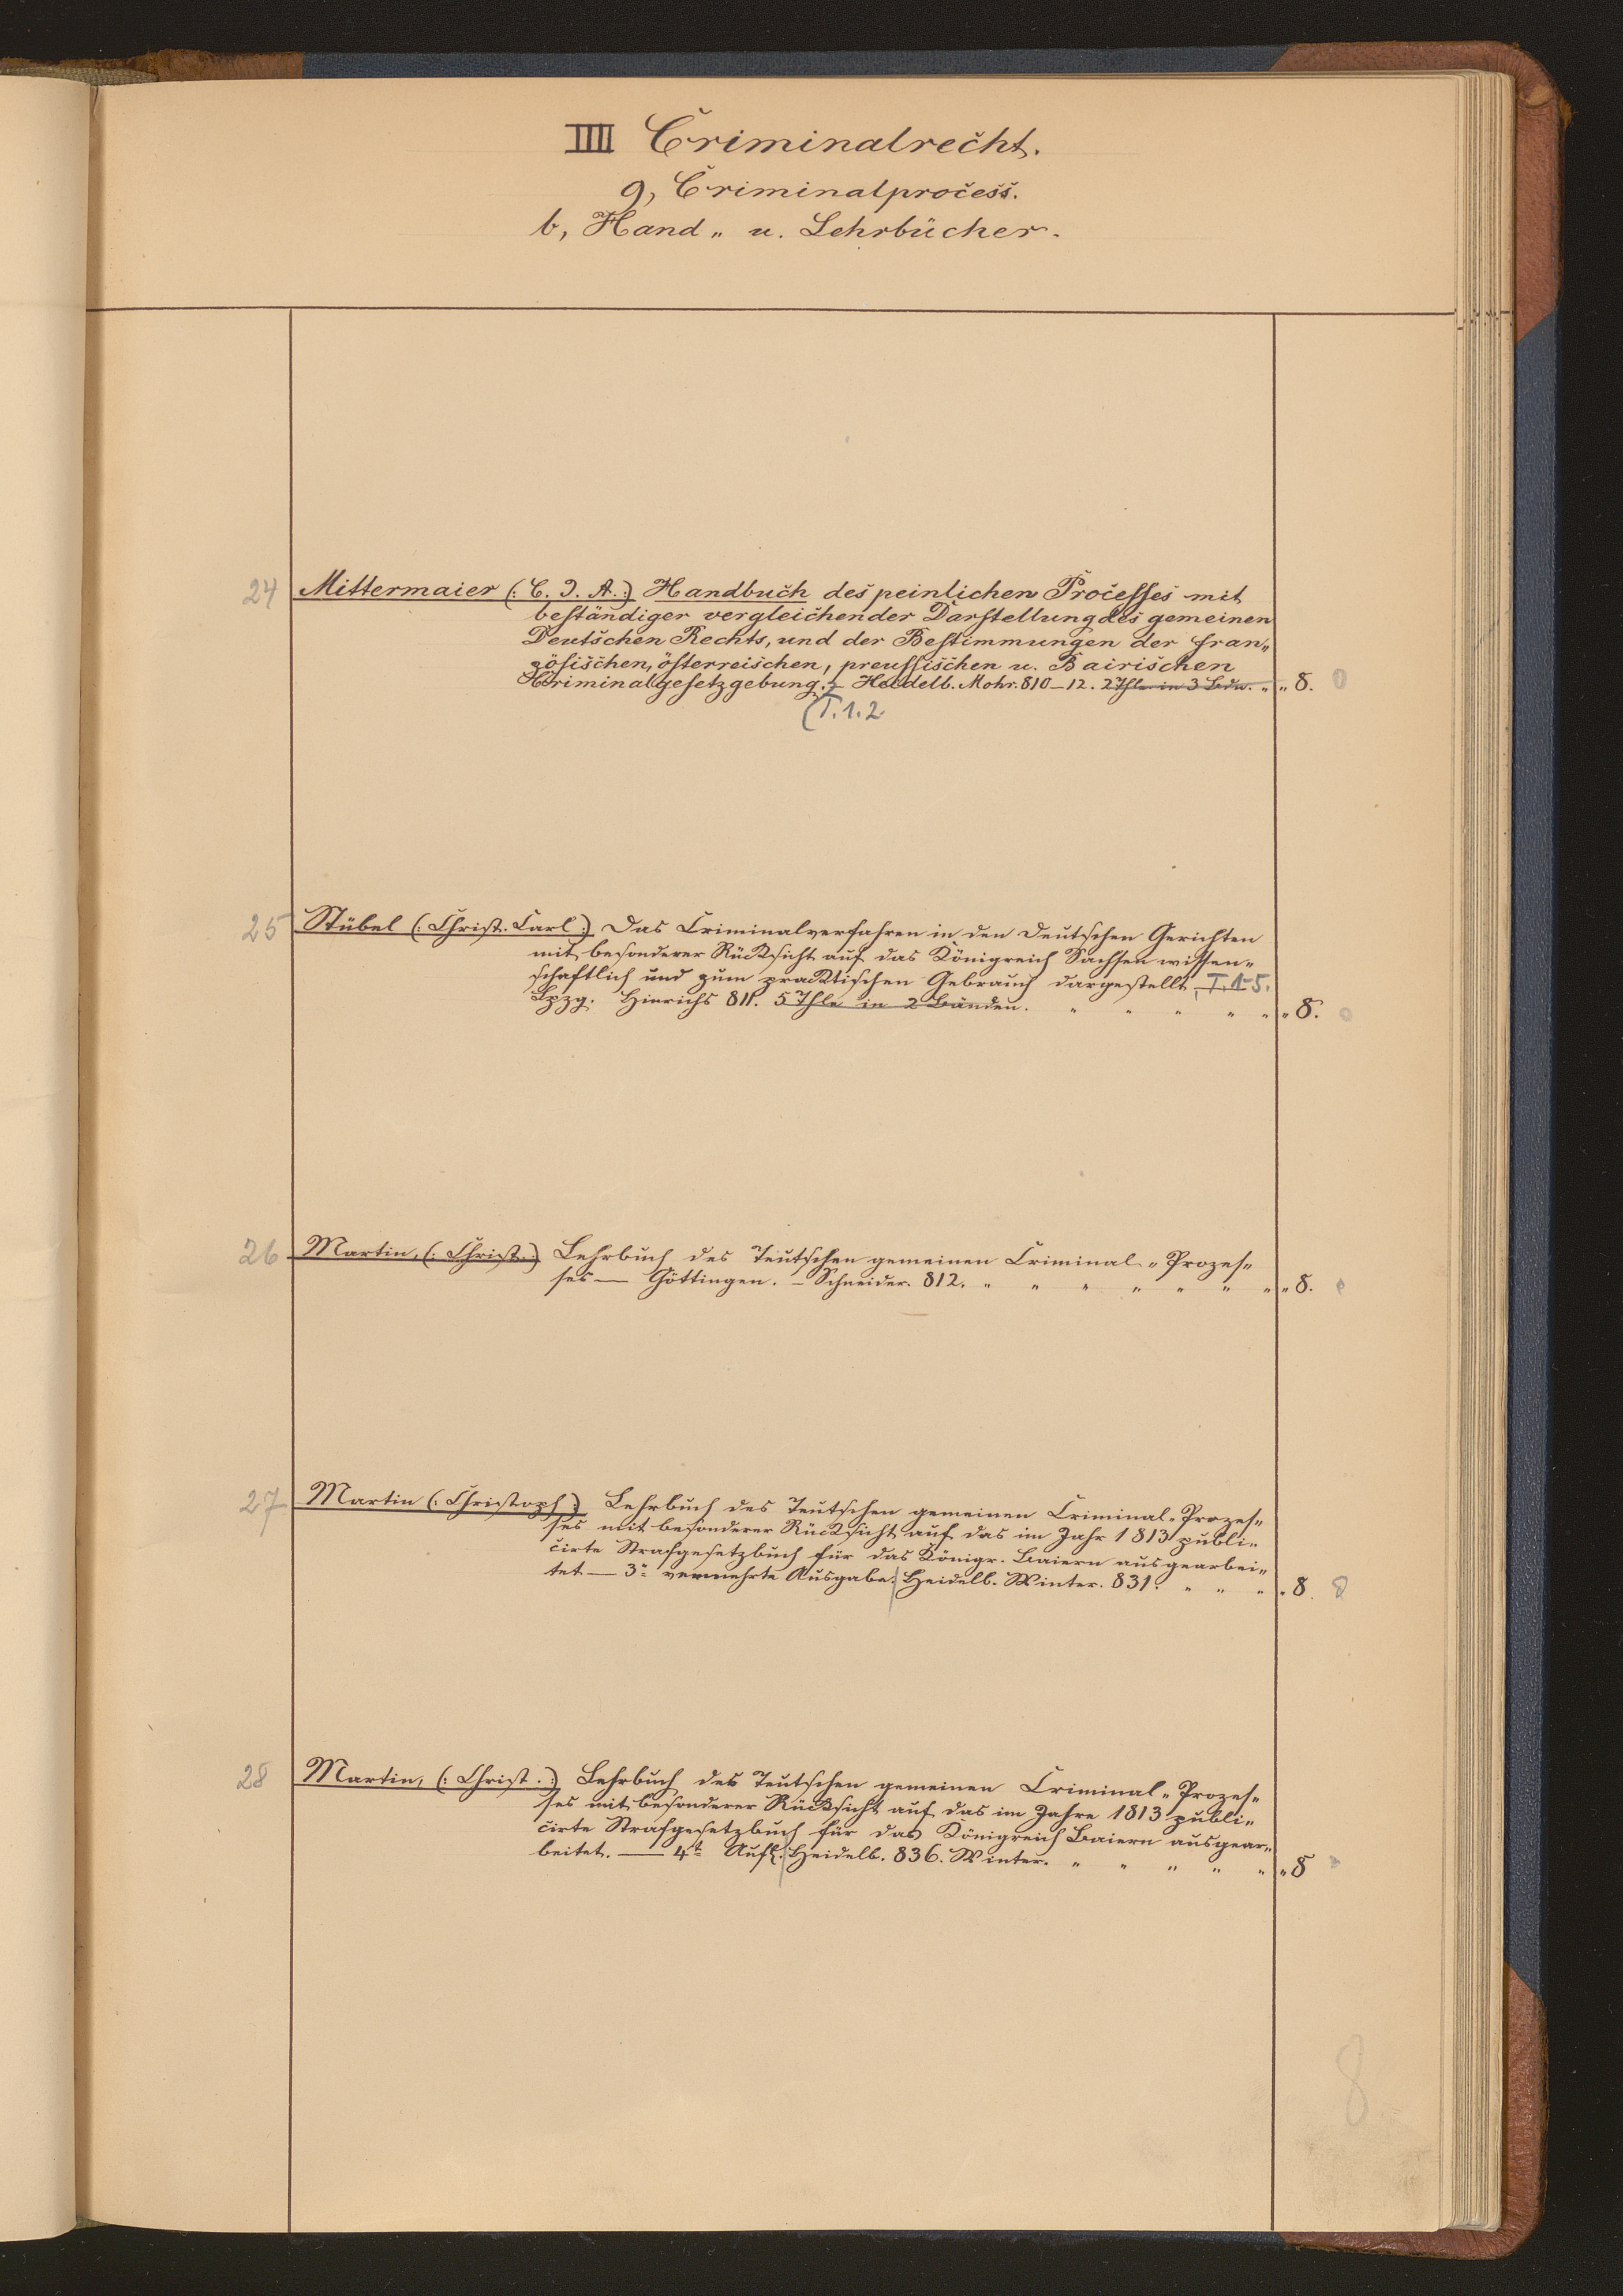 IIII Criminalrecht.
g, Criminalprocess.
b, Hand„ u. Lehrbücher.
24 Mittermaier (: C. J. A. :) Handbuch des peinlichen Processes mit
beständiger vergleichender Darstellung des gemeinen
Deutschen Rechts, und der Bestimmungen der fran„
zösischen, österreischen, preussischen u. Bairischen
Criminalgesetzgebung. – Heidelb. Mohr. 810–12. 2 Thle in 3 Bdn. „ „ 8. 0
(T. 1. 2
25 Stübel (: Christ. Carl :) Das Criminalverfahren in den Deutschen Gerichten
mit besonderer Rücksicht auf das Königreich Sachsen wissen„
schaftlich und zum pracktischen Gebrauch dargestellt, T. 1-5.
Lpzg. Hinrichs 811. 5 Thle in 2 Bänden. „ „ „ „ „ „ 8. 0
26 Martin, (: Christ. :) Lehrbuch des Teutschen gemeinen Criminal„Prozes„
ses — Göttingen. – Schneider. 812. „ „ „ „ „ „ „ „ 8.
27 Martin (: Christoph :) Lehrbuch des Teutschen gemeinen Criminal„Prozes„
ses mit besonderer Rücksicht auf das im Jahr 1813 publi„
cirte Strafgesetzbuch für das Königr. Baiern ausgearbei„
tet — 3te vermehrte Ausgabe. Heidelb. Winter. 831. „ „ „ „ 8. 8
28 Martin, (: Christ. :) Lehrbuch des Teutschen gemeinen Criminal„Prozes„
ses mit besonderer Rücksicht auf das im Jahre 1813 publi„
cirte Strafgesetzbuch für das Königreich Baiern ausgear„
beitet. — 4te Aufl. Heidelb. 836. Winter. „ „ „ „ „ „ 8
8